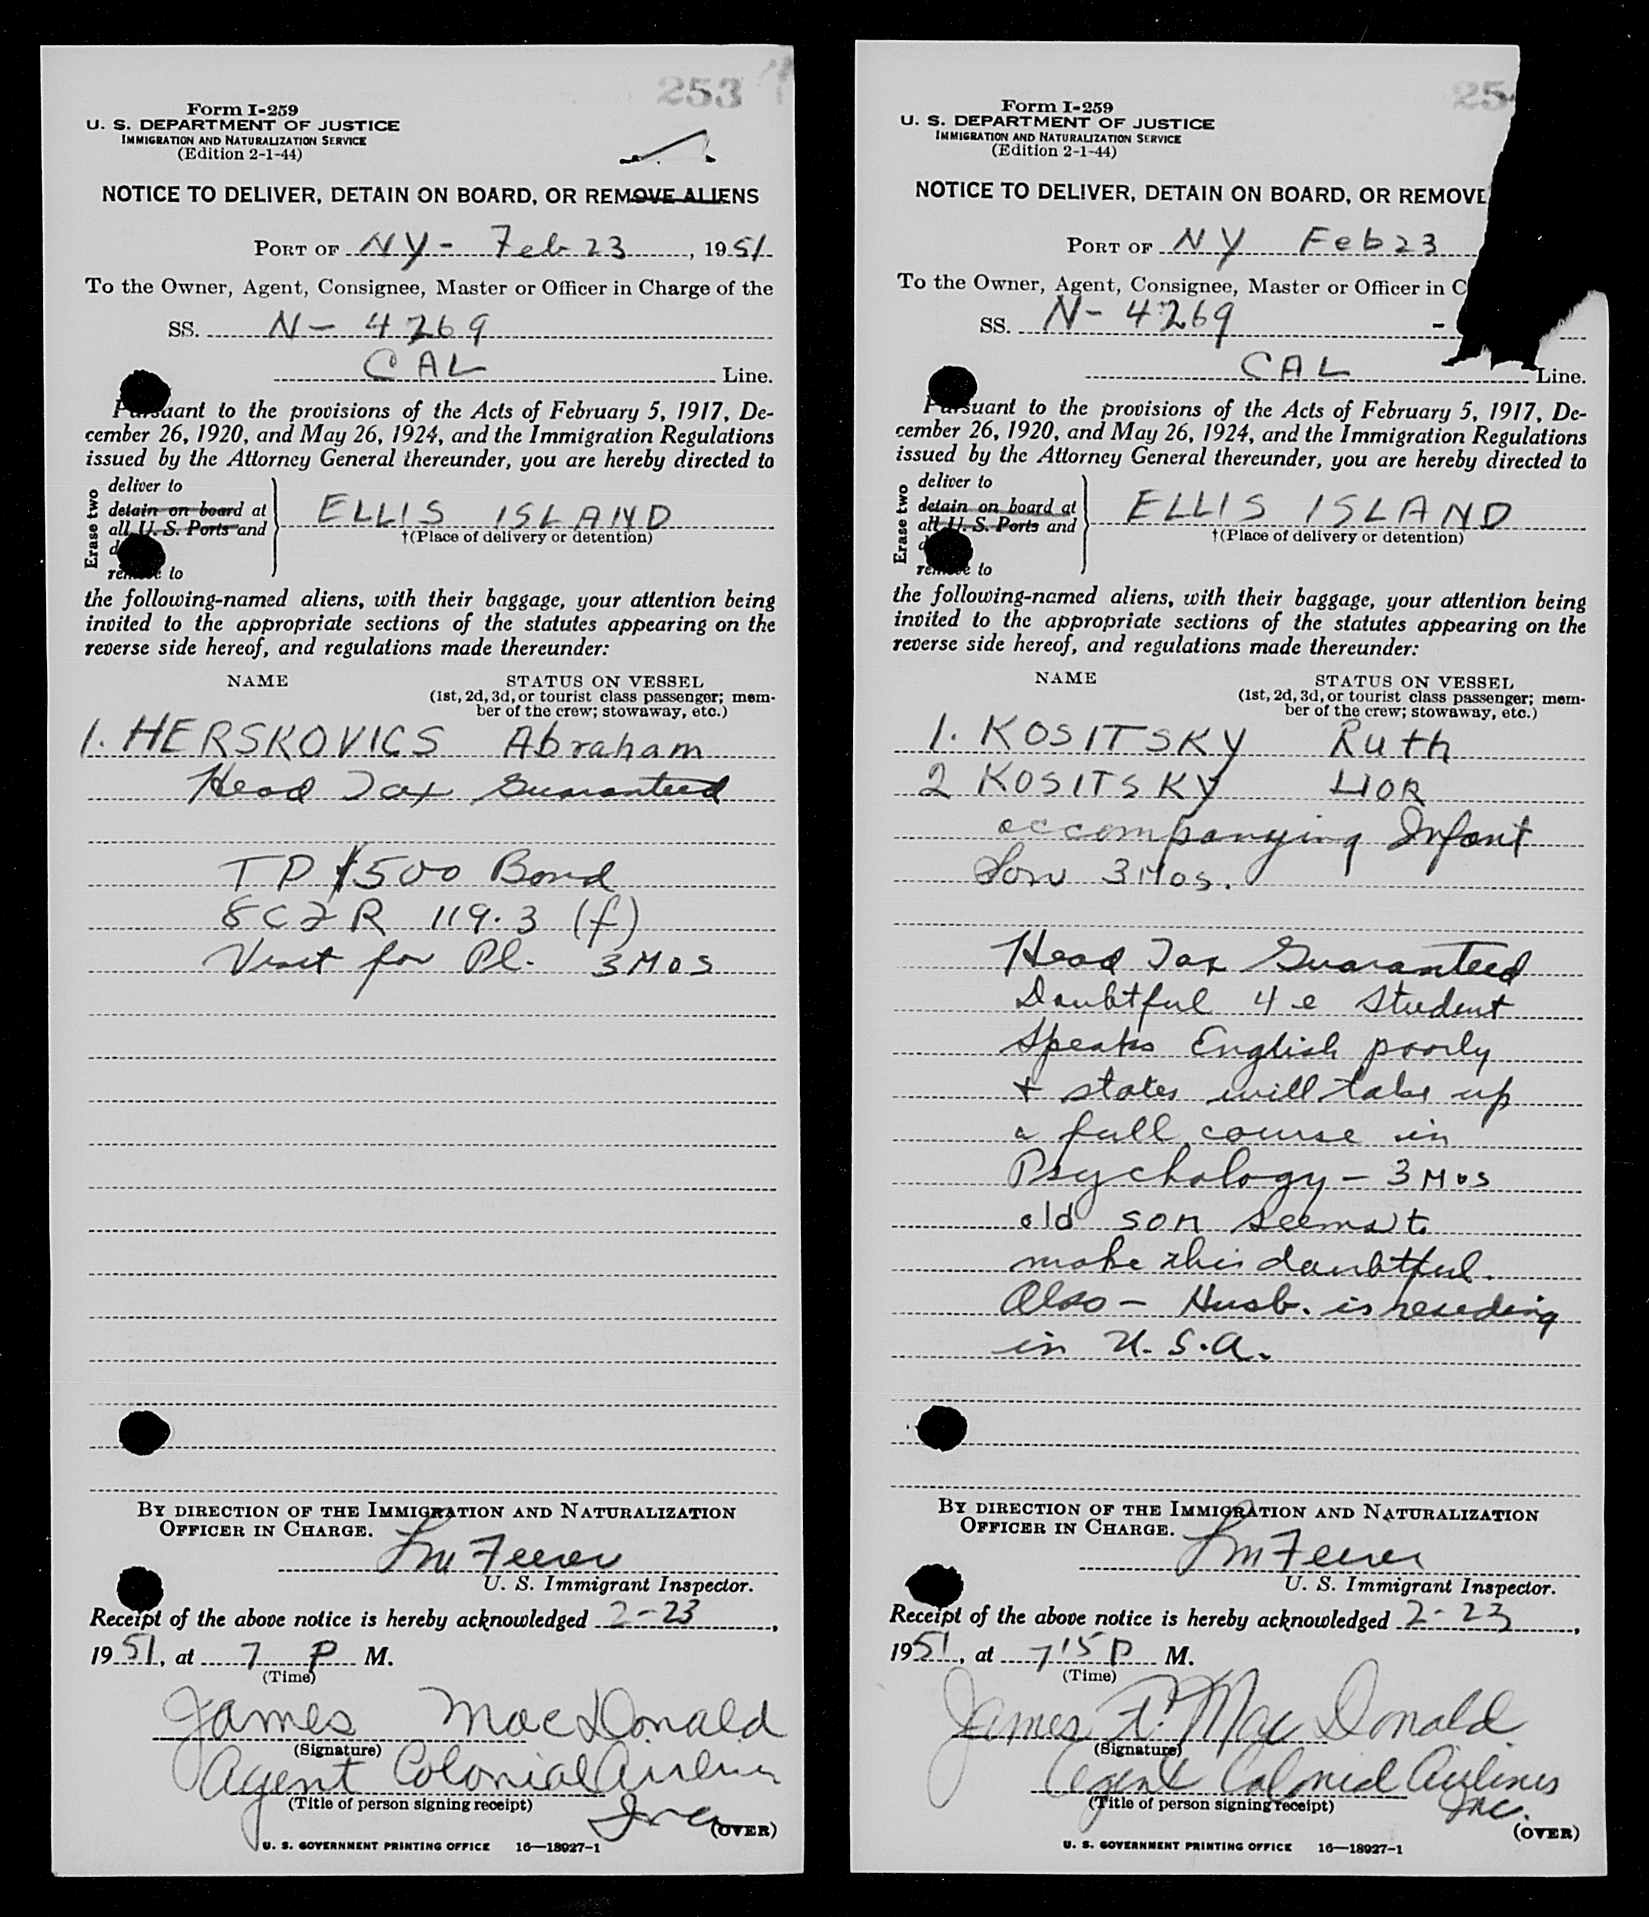 253
Form I-259
U. S. DEPARTMENT OF JUSTICE
IMMIGRATION AND NATURALIZATION SERVICE
(Edition 2-1-44)
NOTICE TO DELIVER, DETAIN ON BOARD, OR REMOVE ALIENS
PORT OF NY - Feb 23, 1951
To the Owner, Agent, Consignee, Master or Officer in Charge of the
SS. N - 4269
CAL Line.
Pursuant to the provisions of the Acts of February 5, 1917, De-
cember 26, 1920, and May 26, 1924, and the Immigration Regulations
issued by the Attorney General thereunder, you are hereby directed to
Erase two
deliver to
detain on board at
all U. S. Ports and
remove to
ELLIS ISLAND
†(Place of delivery or detention)
the following-named aliens, with their baggage, your attention being
invited to the appropriate sections of the statutes appearing on the
reverse side hereof, and regulations made thereunder:
NAME STATUS ON VESSEL
(1st, 2d, 3d, or tourist class passenger; mem-
ber of the crew; stowaway, etc.)
1. HERSKOVICS Abraham
Head Tax Guaranteed
TP $500 Bond
8 C F R 119.3 (f)
Visit for Pl. 3 MOS
BY DIRECTION OF THE IMMIGRATION AND NATURALIZATION
OFFICER IN CHARGE.
U. S. Immigrant Inspector.
Receipt of the above notice is hereby acknowledged 2-23,
1951, at 7 P M.
(Time)
James MacDonald
(Signature)
Agent Colonial Airlines
(Title of person signing receipt)
Inc
(OVER)
U. S. GOVERNMENT PRINTING OFFICE 16—18927-1
25
Form I-259
U. S. DEPARTMENT OF JUSTICE
IMMIGRATION AND NATURALIZATION SERVICE
(Edition 2-1-44)
NOTICE TO DELIVER, DETAIN ON BOARD, OR REMOVE
PORT OF NY Feb 23
To the Owner, Agent, Consignee, Master or Officer in C
SS. N - 4269 -
CAL Line.
Pursuant to the provisions of the Acts of February 5, 1917, De-
cember 26, 1920, and May 26, 1924, and the Immigration Regulations
issued by the Attorney General thereunder, you are hereby directed to
Erase two
deliver to
detain on board at
all U. S. Ports and
remove to
ELLIS ISLAND
†(Place of delivery or detention)
the following-named aliens, with their baggage, your attention being
invited to the appropriate sections of the statutes appearing on the
reverse side hereof, and regulations made thereunder:
NAME STATUS ON VESSEL
(1st, 2d, 3d, or tourist class passenger; mem-
ber of the crew; stowaway, etc.)
1. KOSITSKY Ruth
2 KOSITSKY LIOR
accompanying Infant
Son 3 Mos.
Head Tax Guaranteed
Doubtful 4 e Student
Speaks English poorly
+ states will take up
a full course in
Psychology - 3 Mos
old son seems to
make this doubtful.
Also - Husb. is reseding
in U.S.A.
BY DIRECTION OF THE IMMIGRATION AND NATURALIZATION
OFFICER IN CHARGE.
U. S. Immigrant Inspector.
Receipt of the above notice is hereby acknowledged 2-23,
1951, at 7 15 P M.
(Time)
James F. MacDonald
(Signature)
Agent Colonial Airlines
(Title of person signing receipt)
Inc.
(OVER)
U. S. GOVERNMENT PRINTING OFFICE 16—18927-1